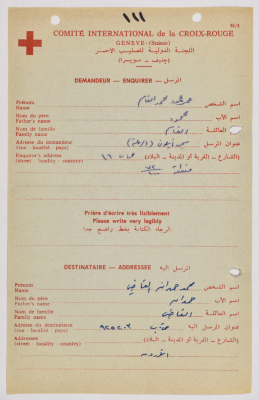 ١١١
61/1
COMITÉ INTERNATIONAL de la CROIX-ROUGE
GENÈVE - (Suisse)
اللجنة الدولية للصليب الاحمر
(جنيف - سويسرا)
DEMANDEUR - ENQUIRER - المرسل
Prénom
Name
اسم الشخص
محمد
Nom du père
Father's name
اسم الأب
محمود
Nom de famille
Family name
العائلة
Adresse du demandeur
(rue - localité - pays)
عنوان المرسل
Enquirer's address
(street - locality - country)
(الشارع - القرية أو المدينة - البلاد)
١٦
Prière d'écrire très lisiblement
Please write very legibly
الرجاء الكتابة بخط واضح جدا
DESTINATAIRE - ADDRESSEE - المرسل اليه
Prénom
Name
اسم الشخص
محمد حمدالله القاضي
Nom du père
Father's name
اسم الأب
حمدالله
Nom de famille
Family name
اسم العائلة
القاضي
Adresse du destinataire
(rue - localité - pays)
عنوان المرسل اليه
Addressee
(street - locality - country)
(الشارع - القرية أو المدينة - البلاد)
الاردن